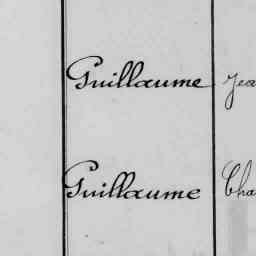 Guillaume Jea
Guillaume Cha